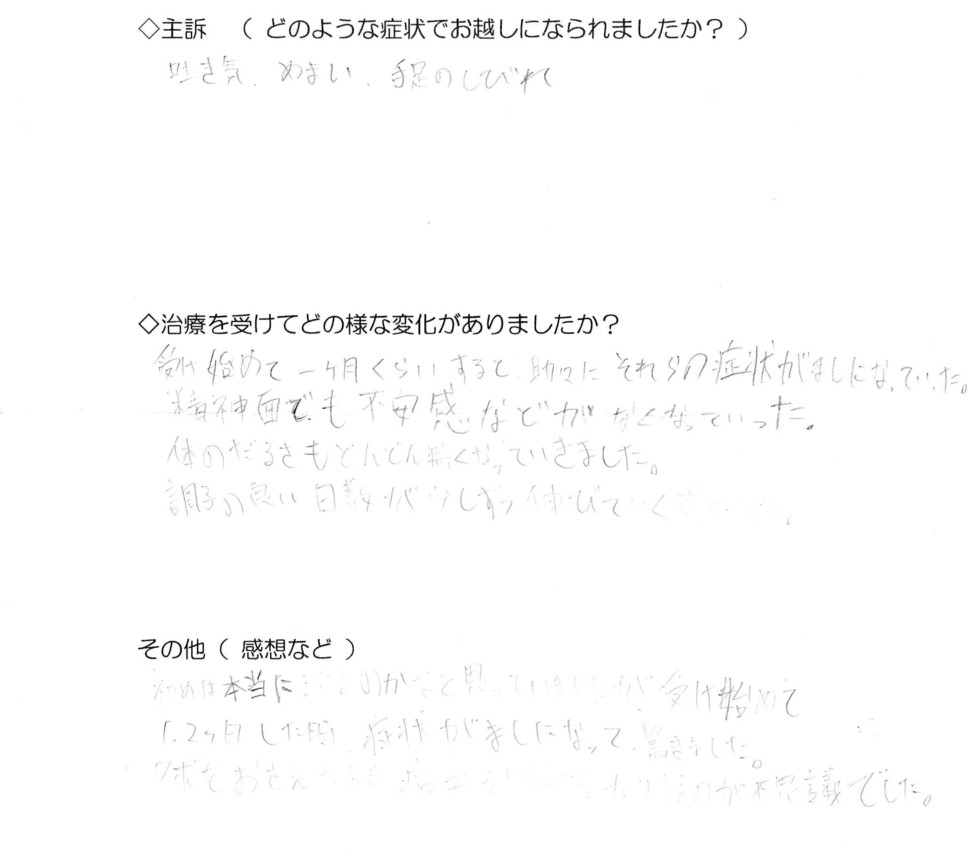 ◇主訴　（ どのような症状でお越しになられましたか？ ）
吐き気、めまい、手足のしびれ
◇治療を受けてどの様な変化がありましたか？
受け始めて一ヶ月くらいすると、助々にそれらの症状がましになっていった。
精神面でも不安感などがなくなっていった。
体のだるさもどんどん無くなっていきました。
調子の良い日数が少しずつ伸びていく
その他（ 感想など ）
初めは本当に のかなと思っていましたが、受け始めて
1、2ヶ月した時、症状がましになって、驚きました。
ツボをおさえ 不思議でした。